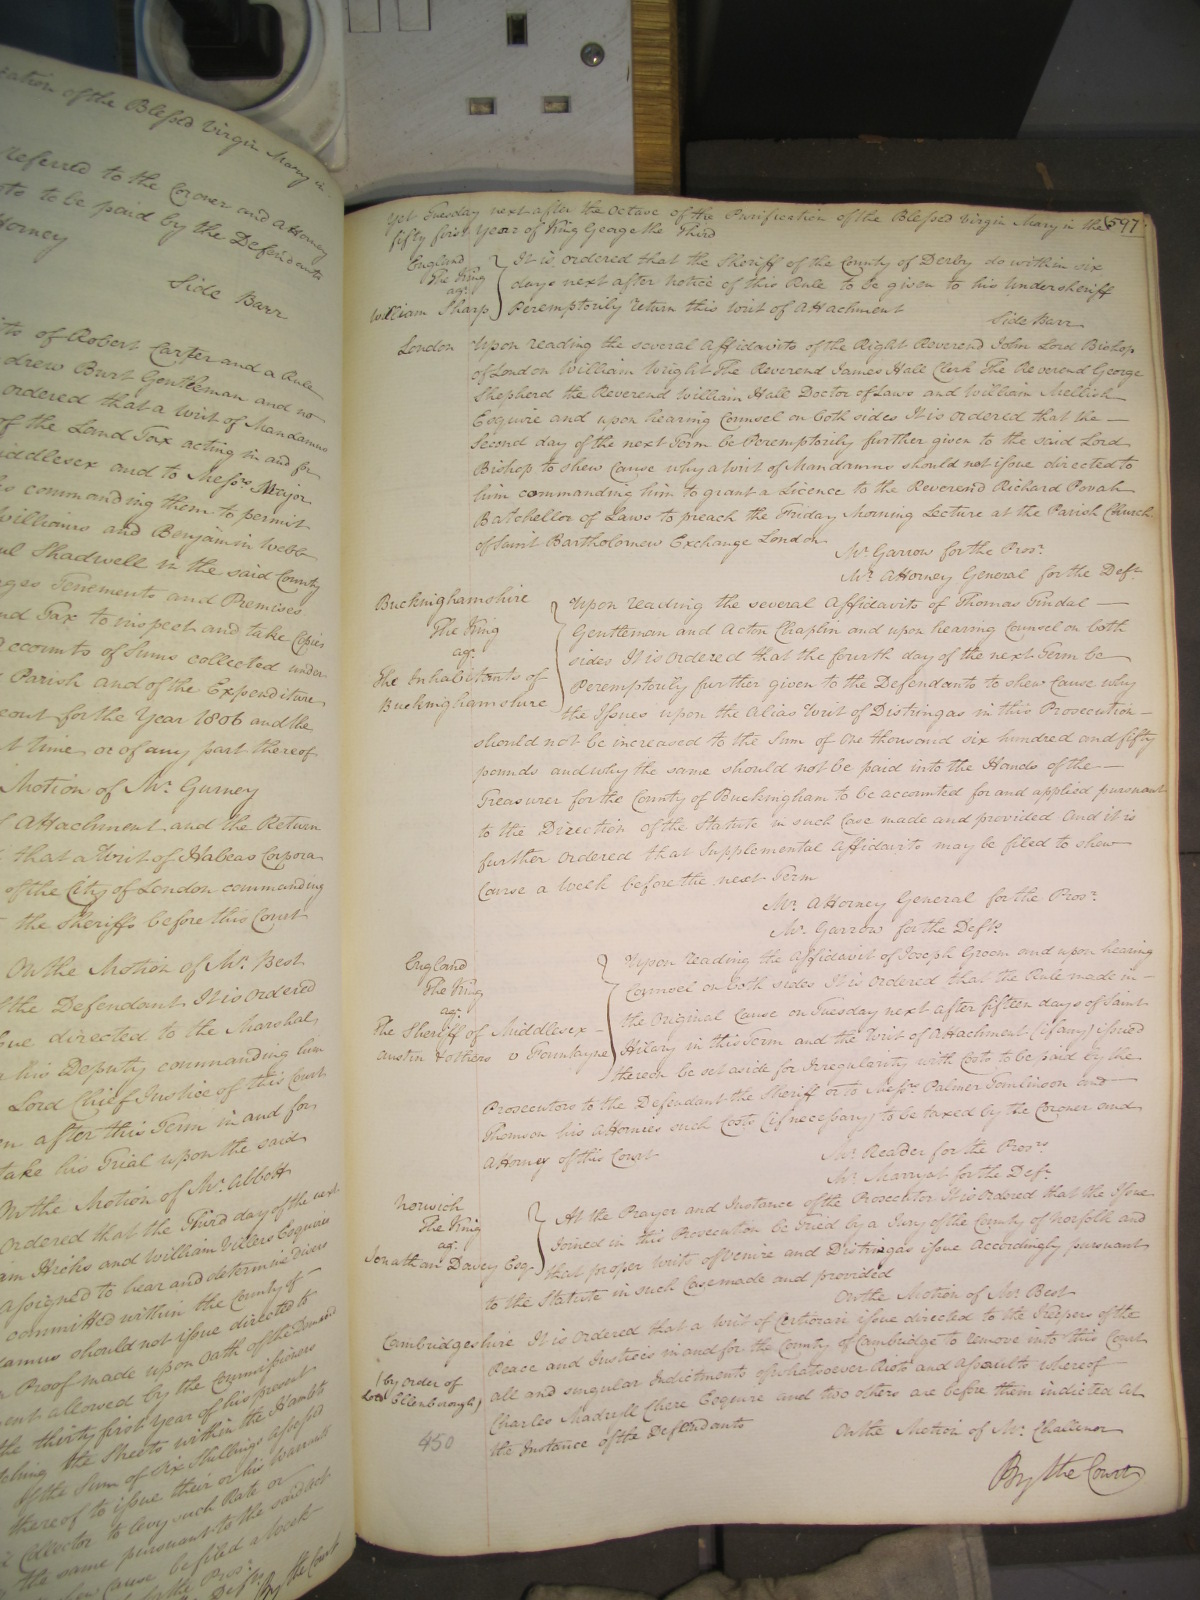 cation of the Blessed Virgin Mary in
referred to the Coroner and Attorney
to be paid by the Defendants
Attorney
Side Barr
of Robert Carter and a Rule
drew Burt Gentleman and no
ordered that a writ of Mandamus
of the Land Tax acting in and for
iddlesex and to Messrs Major
commanding them to permit
Williams and Benjamin Webb
ul Shadwell in the said County
ges Tenements and Premises
nd Tax to inspect and take Copies
Accounts of Sums collected under
Parish and of the Expenditure
cout for the Year 1806 and the
t time or of any part thereof
Motion of Mr. Gurney
f Attachment and the Return
that a Writ of Habeas Corpora
of the City of London commanding
the Sheriffs before this Court
On the Motion of Mr. Best
the Defendant It is Ordered
ue directed to the Marshal
his Deputy commanding him
Lord Chief Justice of this Court
n after this Term in and for
take his Trial upon the said
On the Motion of Mr. Abbott
Ordered that the Third day of the next
am Hicks and William Villers Esquires
Assigned to hear and determine Divers
committed within the County of
damus should not issue directed to
Proof made upon Oath of the Demand
ment allowed by the Commissioners
the thirty first Year of his present
ching the Streets within the Hamlets
of the Sum of Six Shillings assessed
thereof to issue their or his Warrants
Collector to levy such Rate or
the same pursuant to the said Act
shew Cause be filed a Week
for the Prosr.
Defts. By the Court
Yet Tuesday next after the Octave of the Purification of the Blessed Virgin Mary in the 597
fifty first Year of King George the Third
England
The King
agt.
William Sharp
It is ordered that the Sheriff of the County of Derby do within six
days next after notice of this Rule to be given to his Undersheriff
Peremptorily return this writ of Attachment
Side Barr
London Upon reading the several Affidavits of the Right Reverend John Lord Bishop
of London William Wright The Reverend James Hall Clerk The Reverend George
Shepherd the Reverend William Hall Doctor of Laws and William Mellish
Esquire and upon hearing Counsel on both sides It is ordered that the
Second day of the next Term be Peremptorily further given to the said Lord
Bishop to shew Cause why a writ of Mandamus should not issue directed to
him commanding him to grant a Licence to the Reverend Richard Povah
Batchellor of Laws to preach the Friday Morning Lecture at the Parish Church
of Saint Bartholomew Exchange London
Mr. Garrow for the Prosr.
Mr. Attorney General for the Deft.
Buckinghamshire
The King
agt.
The Inhabitants of
Buckinghamshire
Upon reading the several Affidavits of Thomas Tindal
Gentleman and Acton Chaplin and upon hearing Counsel on both
sides It is Ordered that the fourth day of the next Term be
Peremptorily further given to the Defendants to shew Cause why
the Issues upon the Alias Writ of Distringas in this Prosecution
should not be increased to the Sum of One thousand six hundred and fifty
pounds and why the same should not be paid into the Hands of the
Treasurer for the County of Buckingham to be accounted for and applied pursuant
to the Direction of the Statute in such Case made and provided And it is
further Ordered that Supplemental Affidavits may be filed to shew
Cause a Week before the next Term
Mr. Attorney General for the Prosr.
Mr. Garrow for the Defts.
England
The King
agt.
The Sheriff of Middlesex
Austin & others v Fountayne
Upon reading the Affidavit of Joseph Groom and upon hearing
Counsel on both sides It is Ordered that the Rule made in
the Original Cause on Tuesday next after fifteen days of Saint
Hilary in this Term and the Writ of Attachment (if any) issued
thereon be set aside for Irregularity with Costs to be paid by the
Prosecutors to the Defendant the Sheriff or to Messrs. Palmer Tomlinson and
Thomson his Attornies such Costs (if necessary) to be taxed by the Coroner and
Attorney of this Court
Mr. Reader for the Prosrs.
Mr. Marryat for the Deft.
Norwich
The King
agt.
Jonathan Davey Esqr.
At the Prayer and Instance of the Prosecutor It is Ordered that the Issue
Joined in this Prosecution be Tried by a Jury of the County of Norfolk and
that proper writs of Venire and Distringas issue Accordingly pursuant
to the Statute in such Case made and provided
On the Motion of Mr. Best
Cambridgeshire It is Ordered that a writ of Certiorari issue directed to the Keepers of the
Peace and Justices in and for the County of Cambridge to remove into this Court
(by order of
Lord Ellenborough)
all and singular Indictments of whatsoever Riots and Assaults whereof
Charles Madryll Chere Esquire and two others are before them indicted At
the Instance of the Defendants
On the Motion of Mr. Challenor
450
By the Court